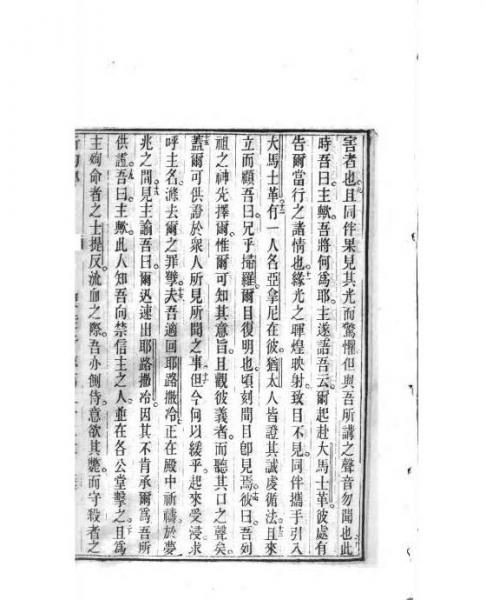 害者也且同伴果見其光而驚懼但與吾所講之聲音勿聞也此
時吾曰主歟吾將何為耶主遂語吾云爾起赴大馬士革彼處有
告爾當行之諸情也緣光之暉煌映射致目不見同伴攜手引入
大馬士革有一人名亞拿尼在彼猶太人皆證其誠虔循法且來
立而顧吾曰兄乎掃羅爾目復明也頃刻間目卽見焉彼曰吾列
祖之神先擇爾惟爾可知其意旨且觀彼義者而聽其口之聲矣
蓋爾可供證於衆人所見所聞之事但今何以緩乎起來受浸求
呼主名滌去爾之罪孽夫吾適回耶路撒冷正在殿中祈禱於夢
兆之間見主諭吾曰爾迅速出耶路撒冷因其不肯承爾為吾所
供證吾曰主歟此人知吾向禁信主之人並在各公堂擊之且為
主殉命者之士提反流血之際吾亦側侍意欲其斃而守殺者之